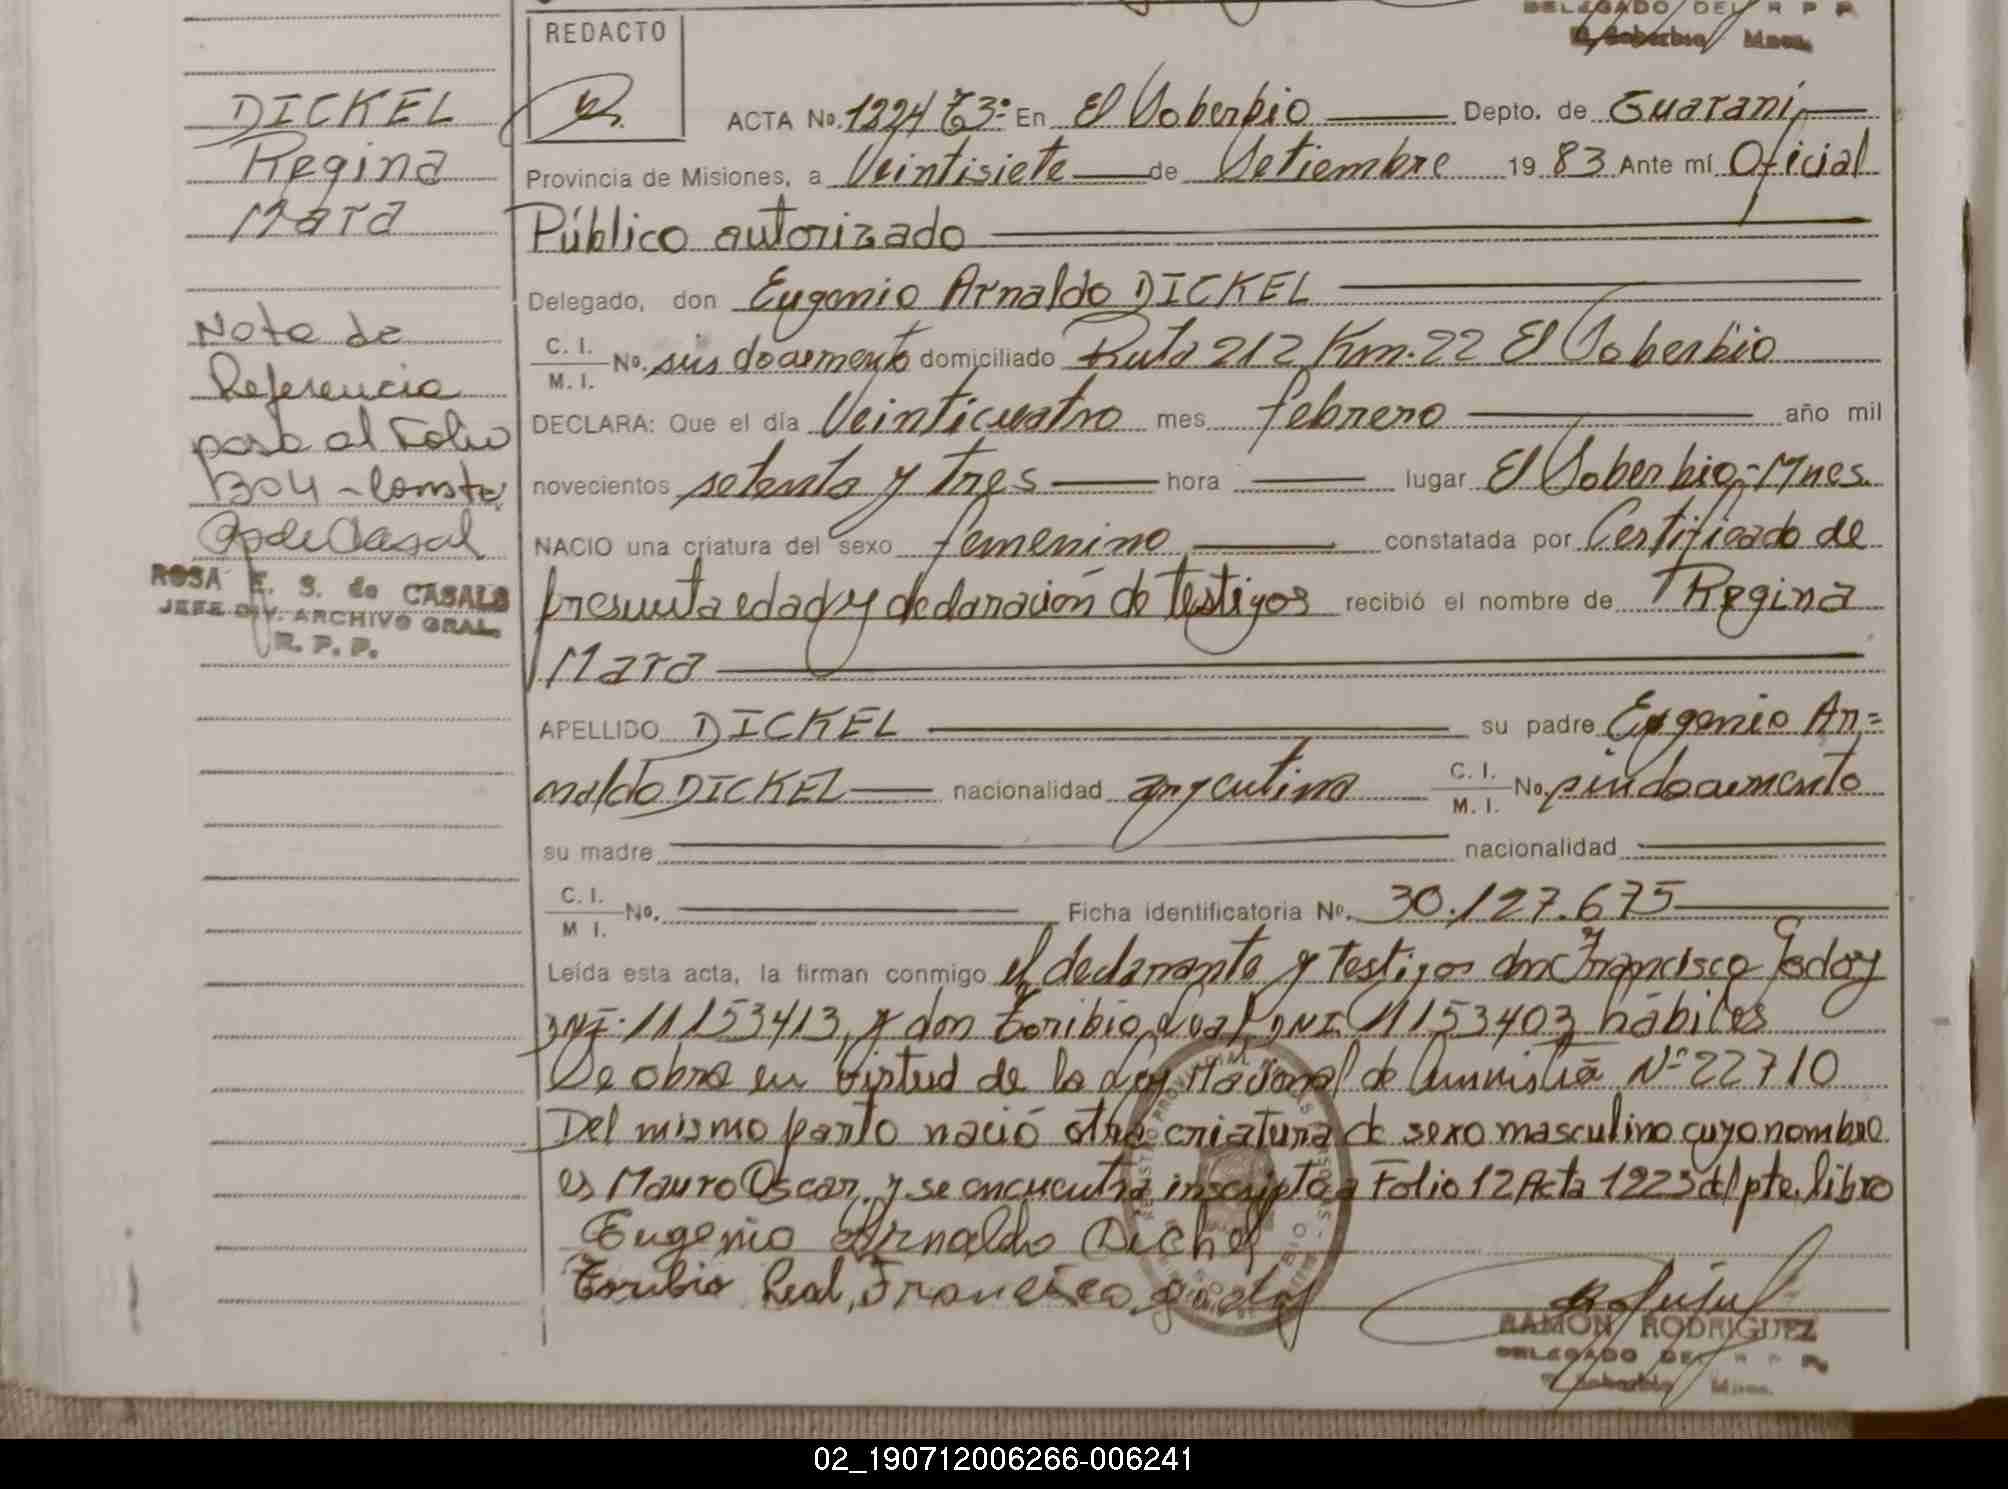 DELEGADO DEL R P P
El Soberbio Mnes.
REDACTO
DICKEL
Regina
Mara
ACTA No. 1224 T3º En El Soberbio Depto. de Guaraní
Provincia de Misiones, a Veintisiete de Setiembre 19 83 Ante mí Oficial
Público autorizado
Delegado, don Eugenio Arnaldo DICKEL
C. I. M. I. No. sin documento domiciliado Ruta 212 Km. 22 El Soberbio
DECLARA: Que el día Veinticuatro mes febrero año mil
novecientos setenta y tres hora lugar El Soberbio-Mnes.
NACIO una criatura del sexo femenino constatada por Certificado de
presunta edad y declaración de testigos recibió el nombre de Regina
Mara
APELLIDO DICKEL su padre Eugenio Ar=
naldo DICKEL nacionalidad argentina C. I. M. I. No. sin documento
su madre nacionalidad
C. I. M I. No. Ficha identificatoria No. 30.127.675
Leída esta acta, la firman conmigo el declarante y testigos don Francisco Godoy
DNI. 11153413, y don Toribio Leal DNI 11153403 hábiles
Se obra en virtud de la Ley Nacional de Amnistía Nº 22710
Del mismo parto nació otra criatura de sexo masculino cuyo nombre
es Mauro Oscar y se encuentra inscripto a Folio 12 Acta 1223 del pte. libro
Eugenio Arnaldo Dickel
Toribio Leal, Francisco godoy
RAMON RODRIGUEZ
DELEGADO DEL R P P
El Soberbio Mnes.
Nota de
Referencia
pasa al Folio
1304 - Conste
ROSA E. S. de CASALS
JEFE DIV. ARCHIVO GRAL.
R. P. P.
02_190712006266-006241